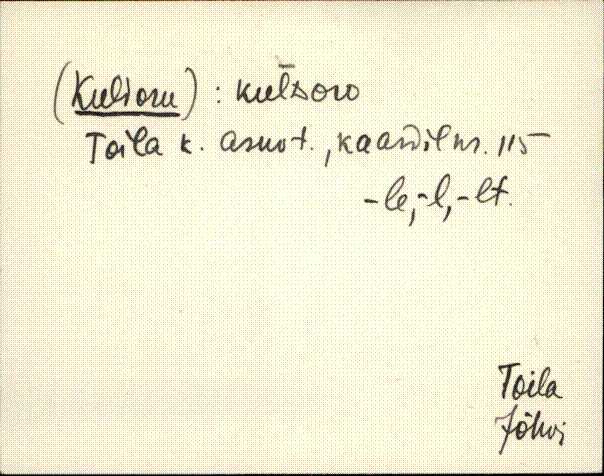 (Kulsoru) : kul̄soro
Toila k. asnot., kaardil nr. 115
-le, -l, -lt.
Toila
Jõhvi